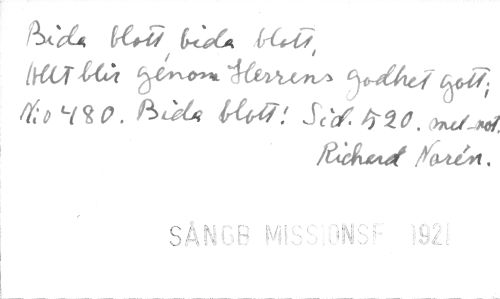 Bida blott, bida blott,
Allt blir genom Herrens godhet gott;
N:o 480. Bida blott! Sid. 520. mel-not.
Richard Norén.
SÅNGB MISSIONSF 1921